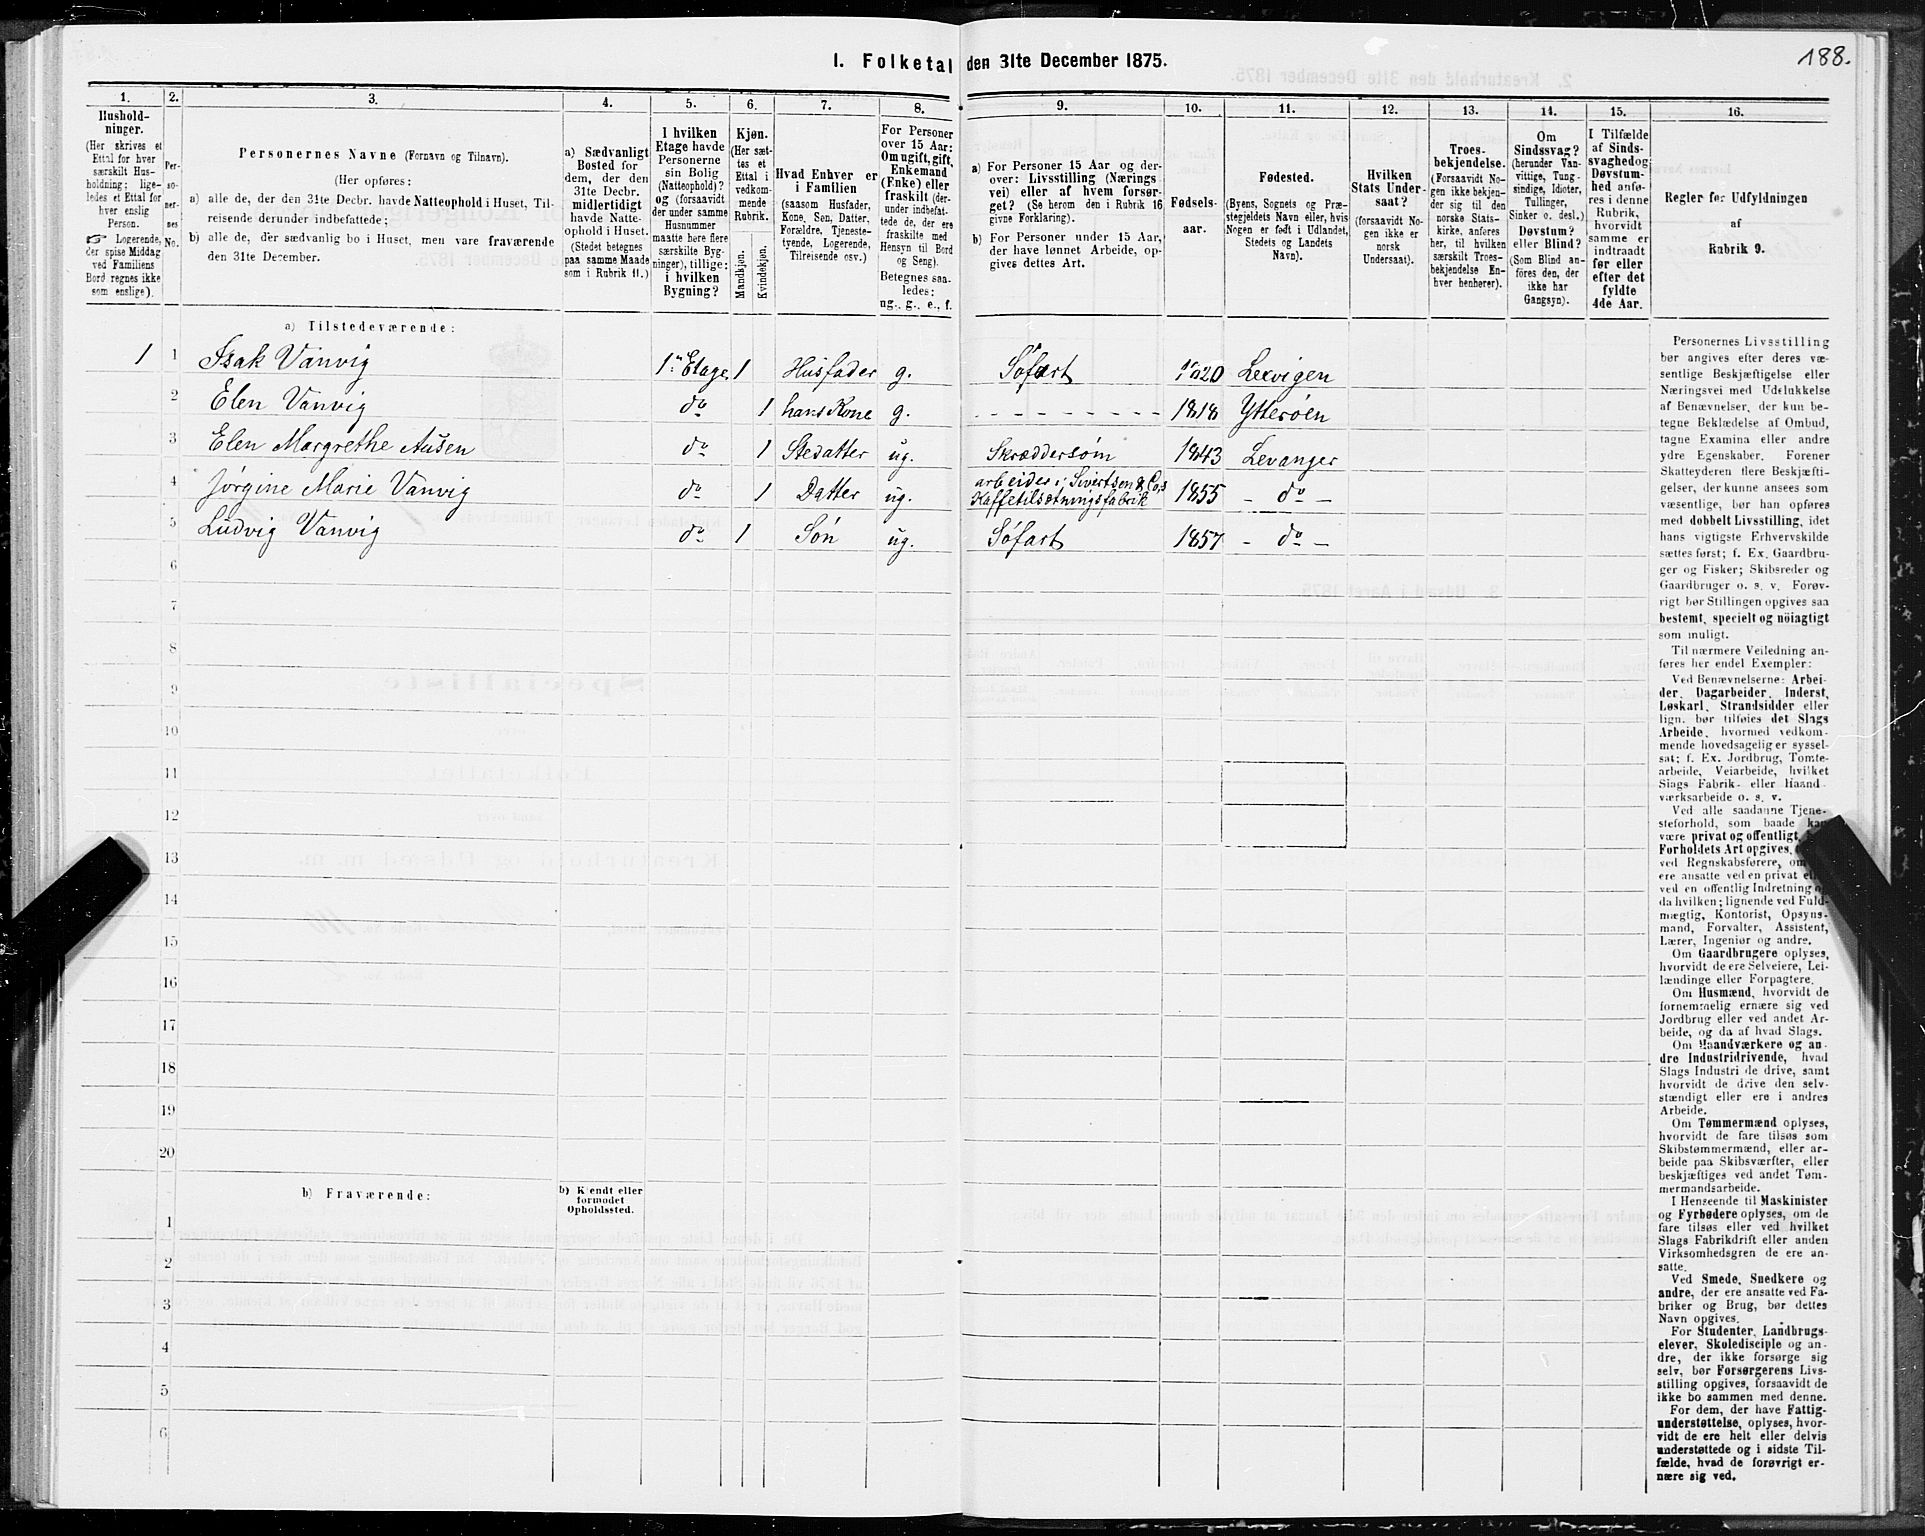 188.
I. Folketal den 31te December 1875.
1. 2. 3. 4. 5. 6. 7. 8. 9. 10. 11. 12. 13. 14. 15. 16.
Husholdninger.
(Her skrives et
Ettal for hver
særskilt Husholdning; ligeledes et Ettal for
hver enslig
Person.
☞ Logerende,
der spise Middag
ved Familiens
Bord regnes ikke
som enslige).
Personernes No.
Personernes Navne (Fornavn og Tilnavn).
(Her opføres:
a) alle de, der den 31te Decbr. havde Natteophold i Huset, Tilreisende derunder indbefattede;
b) alle de, der sædvanlig bo i Huset, men vare fraværende
den 31te December.
a) Sædvanligt
Bosted for
dem, der den
31te Decbr.
midlertidigt
havde Natteophold i Huset.
(Stedet betegnes
paa samme Maade
som i Rubrik 11.)
I hvilken
Etage havde
Personerne
sin Bolig
(Natteophold)?
og (forsaavidt
der under samme
Husnummer
maatte høre flere
særskilte Bygninger), tillige:
i hvilken
Bygning?
Kjøn.
(Her sættes et
Ettal i
vedkommende
Rubrik.
Mandkjøn.
Kvindekjøn.
Hvad Enhver er
i Familien
(saasom Husfader,
Kone, Søn, Datter,
Forældre, Tjenestetyende, Logerende,
Tilreisende osv.)
For Personer
over 15 Aar:
Om ugift, gift,
Enkemand
(Enke) eller
fraskilt (derunder indbefattede de, der ere
fraskilte med
Hensyn til Bord
og Seng).
Betegnes saaledes:
ug., g., e., f.
a) For Personer 15 Aar og derover: Livsstilling (Næringsvei) eller af hvem forsørget? (Se herom den i Rubrik 16
givne Forklaring).
b) For Personer under 15 Aar,
der have lønnet Arbeide, opgives dettes Art.
Fødselsaar.
Fødested.
(Byens, Sognets og Præstegjeldets Navn eller, hvis
Nogen er født i Udlandet,
Stedets og Landets
Navn).
Hvilken
Stats Undersaat?
(forsaavidt Nogen ikke er
norsk
Undersaat).
Troesbekjendelse.
(Forsaavidt Nogen ikke bekjender sig til den
norske Statskirke, anføres
her, til hvilken
særskilt Troesbekjendelse Enhver henhører).
Om
Sindssvag?
(herunder Vanvittige, Tungsindige, Idioter,
Tullinger,
Sinker o. desl.)
Døvstum?
eller Blind?
(Som Blind anføres den, der
ikke har
Gangsyn).
I Tilfælde
af Sindssvaghed og
Døvstumhed anføres i denne
Rubrik,
hvorvidt
samme er
indtraadt
før eller
efter det
fyldte
4de Aar.
Regler for Udfyldningen
af
Rubrik 9.
a) Tilstedeværende:
1 1 Isak Vanvig 1ste Etage. 1 Husfader g. Søfart 1820 Lexvigen
2 Elen Vanvig do 1 hans Kone g. - - - - - - - - - 1818 Ytterøen
3 Elen Margrethe Ausen do 1 Stedatter ug. Skræddersøm 1843 Levanger
4 Jørgine Marie Vanvig do 1 Datter ug. arbeider i Sivertsen & Co,s Kaffetilsætningsfabrik 1855 - do -
5 Ludvig Vanvig do 1 Søn ug. Søfart 1857 - do -
6
7
8
9
10
11
12
13
14
15
16
17
18
19
20
b) Fraværende:
b) Kjendt eller
formodet
Opholdssted.
1
2
3
4
5
6
Personernes Livsstilling
bør angives efter deres væsentlige Beskjæftigelse eller
Næringsvei med Udelukkelse
af Benævnelser, der kun betegne Beklædelse af Ombud,
tagne Examina eller andre
ydre Egenskaber. Forener
Skatteyderen flere Beskjæftigelser, der kunne ansees som
væsentlige, bør han opføres
med dobbelt Livsstilling, idet
hans vigtigste Erhvervskilde
sættes først; f. Ex. Gaardbruger og Fisker; Skibsreder og
Gaardbruger o. s. v. Forøvrigt bør Stillingen opgives saa
bestemt, specielt og nöiagtigt
som muligt.
Til nærmere Veiledning anføres her endel Exempler:
Ved Benævnelserne: Arbeider, Dagarbeider, Inderst,
Løskarl, Strandsidder eller
lign. bør tilføies det Slags
Arbeide, hvormed vedkommende hovedsagelig er sysselsat; f. Ex. Jordbrug, Tomtearbeide, Veiarbeide, hvilket
Slags Fabrik- eller Haandværksarbeide o. s. v.
Ved alle saadanne Tjenesteforhold, som baade kan
være privat og offentligt,
Forholdets Art opgives,
ved Regnskabsførere, om
ere ansatte ved en privat
ved en offentlig Indretning
da hvilken; lignende ved Fuldmægtig, Kontorist, Opsynsmand, Forvalter, Assistent,
Lærer, Ingeniør og andre.
Om Gaardbrugere oplyses,
hvorvidt de ere Selveiere, Leilændinge eller Forpagtere.
Om Husmænd, hvorvidt de
fornemmelig ernære sig ved
Jordbrug eller ved andet Arbeide, og da af hvad Slags.
Om Haandværkere og andre Industridrivende, hvad
Slags Industri de drive, samt
hvorvidt de drive den selvstændigt eller ere i andres
Arbeide.
Om Tømmermænd oplyses,
hvorvidt de fare tilsøs som
Skibstømmermænd, eller arbeide paa Skibsværfter, eller
beskjæftiges ved andet Tømmermandsarbeide.
I Henseende til Maskinister
og Fyrbødere oplyses, om de
fare tilsøs eller ved hvilket
Slags Fabrikdrift eller anden
Virksomhedsgren de ere ansatte.
Ved Smede, Snedkere og
andre, der ere ansatte ved Fabriker og Brug, bør dettes
Navn opgives.
For Studenter, Landbrugselever, Skoledisciple og andre, der ikke forsørge sig
selv, bør Forsørgerens Livsstilling opgives, forsaavidt de
ikke bo sammen med denne.
For dem, der have Fattigunderstøttelse, oplyses, hvorvidt de ere helt eller delvis
understøttede og i sidste Tilfælde, hvad de forøvrigt ernære sig ved.